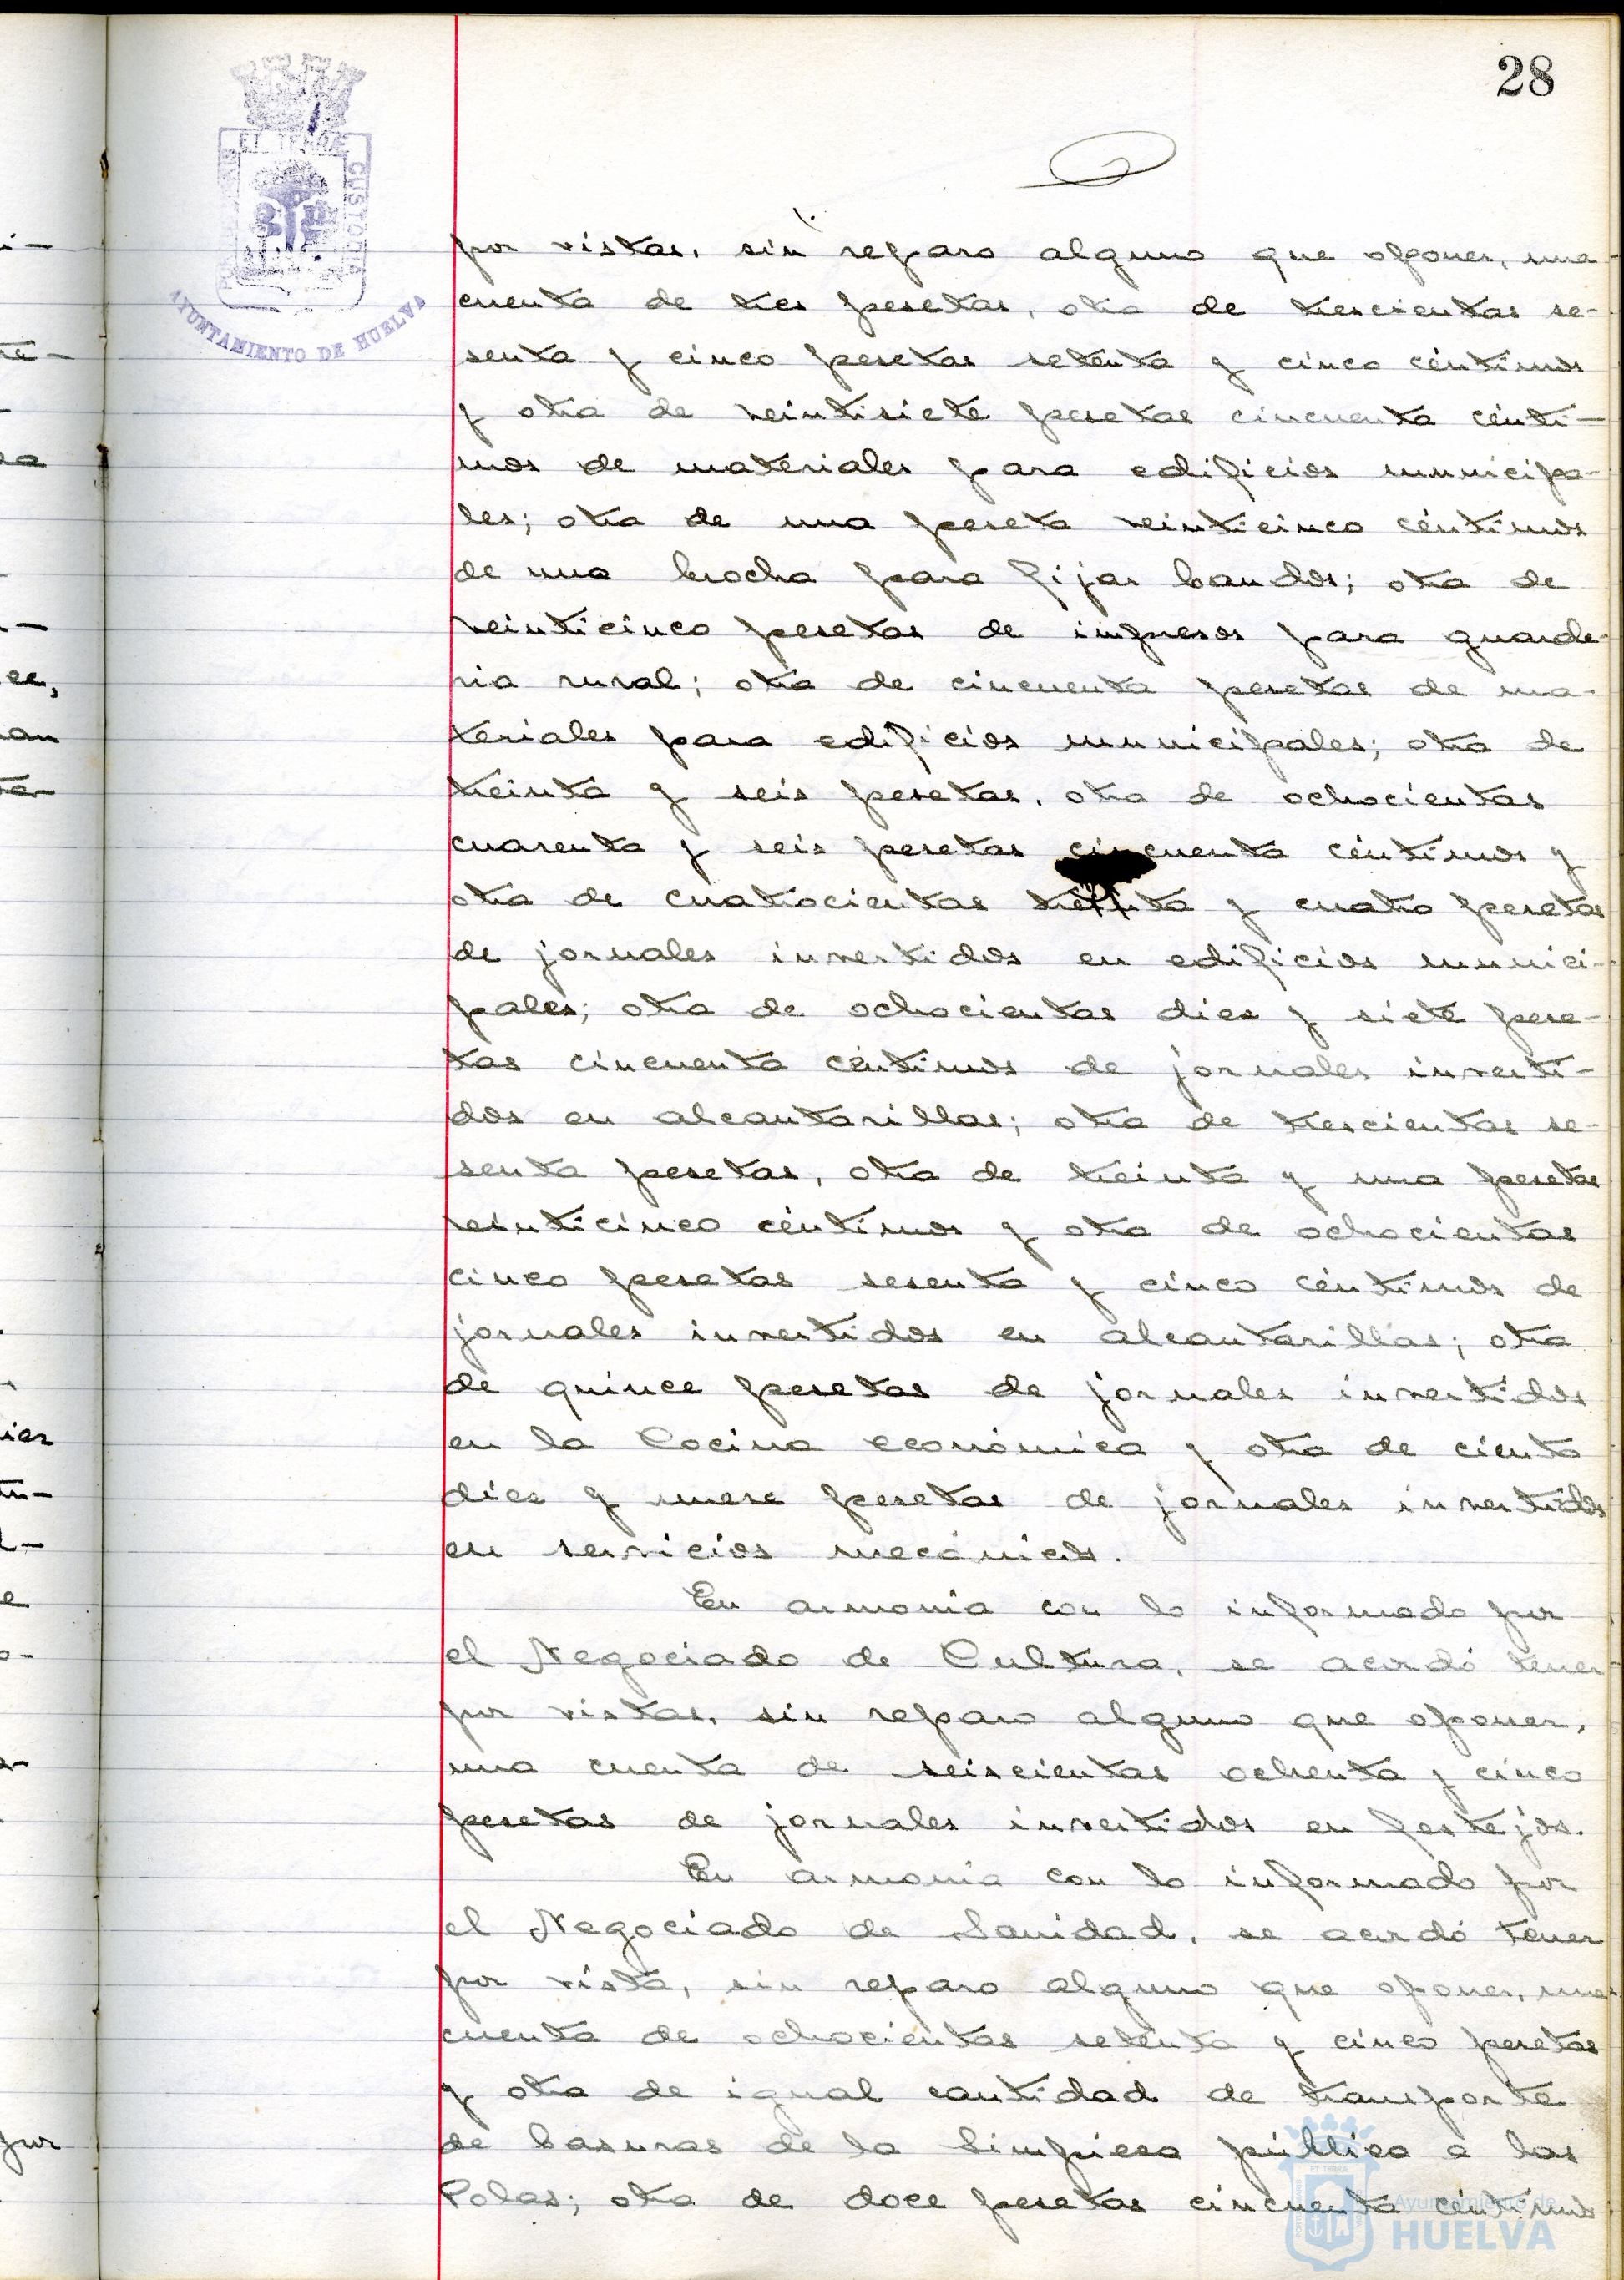 28
ET TERRÆ
CUSTODIA
AYUNTAMIENTO DE HUELVA
por vistas, sin reparo alguno que oponer, una
cuenta de tres pesetas, otra de trescientas se-
senta y cinco pesetas setenta y cinco céntimos
y otra de veintisiete pesetas cincuenta cénti-
mos de materiales para edificios municipa-
les; otra de una peseta veinticinco céntimos
de una brocha para fijar bandos; otra de
veinticinco pesetas de impresos para guarde-
ria rural; otra de cincuenta pesetas de ma-
teriales para edificios municipales; otra de
treinta y seis pesetas, otra de ochocientas
cuarenta y seis pesetas cincuenta céntimos y
otra de cuatrocientas treinta y cuatro pesetas
de jornales invertidos en edificios munici-
pales; otra de ochocientas diez y siete pese-
tas cincuenta céntimos de jornales inverti-
dos en alcantarillas; otra de trescientas se-
senta pesetas, otra de treinta y una pesetas
veinticinco céntimos y otra de ochocientas
cinco pesetas sesenta y cinco céntimos de
jornales invertidos en alcantarillas; otra
de quince pesetas de jornales invertidos
en la Cocina económica y otra de ciento
diez y nueve pesetas de jornales invertidos
en servicios mecánicos.
En armonia con lo informado por
el Negociado de Cultura, se acordó tener
por vistas, sin reparo alguno que oponer,
una cuenta de seiscientas ochenta y cinco
pesetas de jornales invertidos en festejos.
En armonia con lo informado por
el Negociado de Sanidad, se acordó tener
por vista, sin reparo alguno que oponer, una
cuenta de ochocientas setenta y cinco pesetas
y otra de igual cantidad de transporte
de basuras de la limpieza pública a las
Colas; otra de doce pesetas cincuenta céntimos
Ayuntamiento de
HUELVA